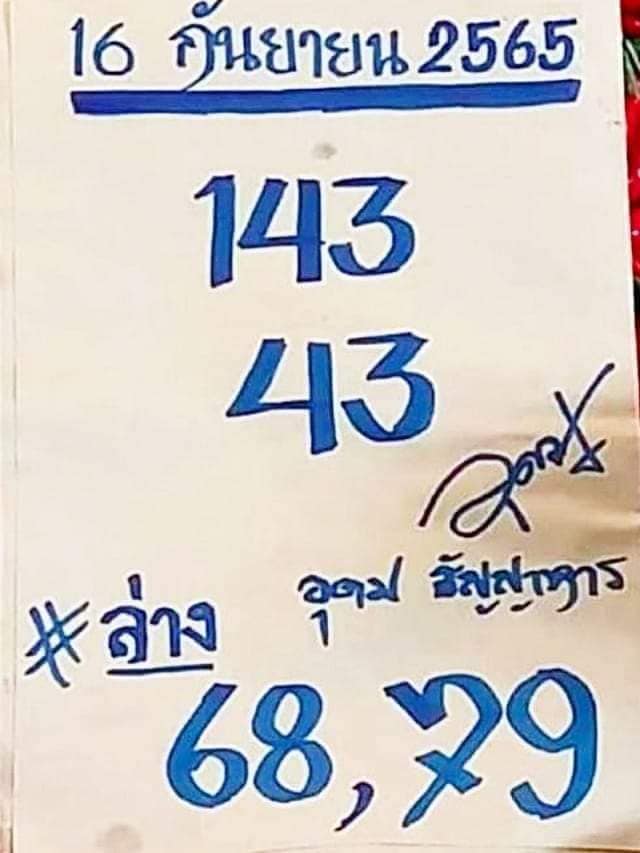 16 กันยายน 2565
143
43
อุดม ธัญญาหาร
#ล่าง
68, 79